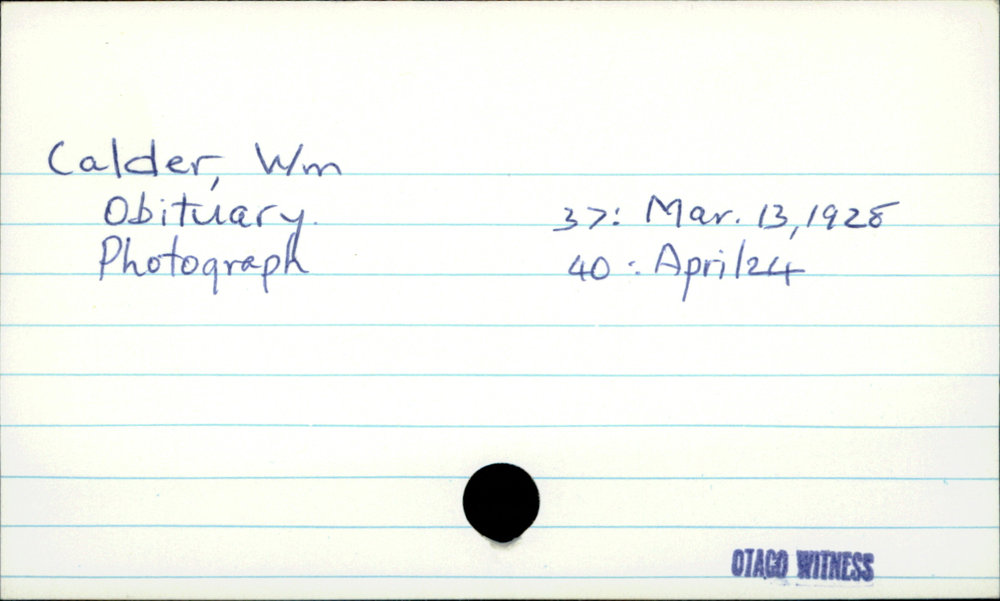 Calder, Wm
Obituary. 37: Mar. 13, 1928
Photograph 40: April 24
OTAGO WITNESS